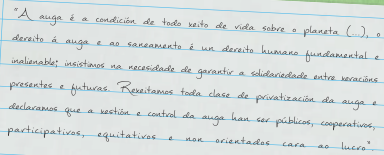 "A auga é a condición de todo xeito de vida sobre o planeta (...), o
dereito á auga e ao saneamento é un dereito humano fundamental e
inalienable; insistimos na necesidade de garantir a solidariedade entre xeracións
presentes e futuras. Rexeitamos toda clase de privatización da auga e
declaramos que a xestión e control da auga han ser públicos, cooperativos,
participativos, equitativos e non orientados cara ao lucro".